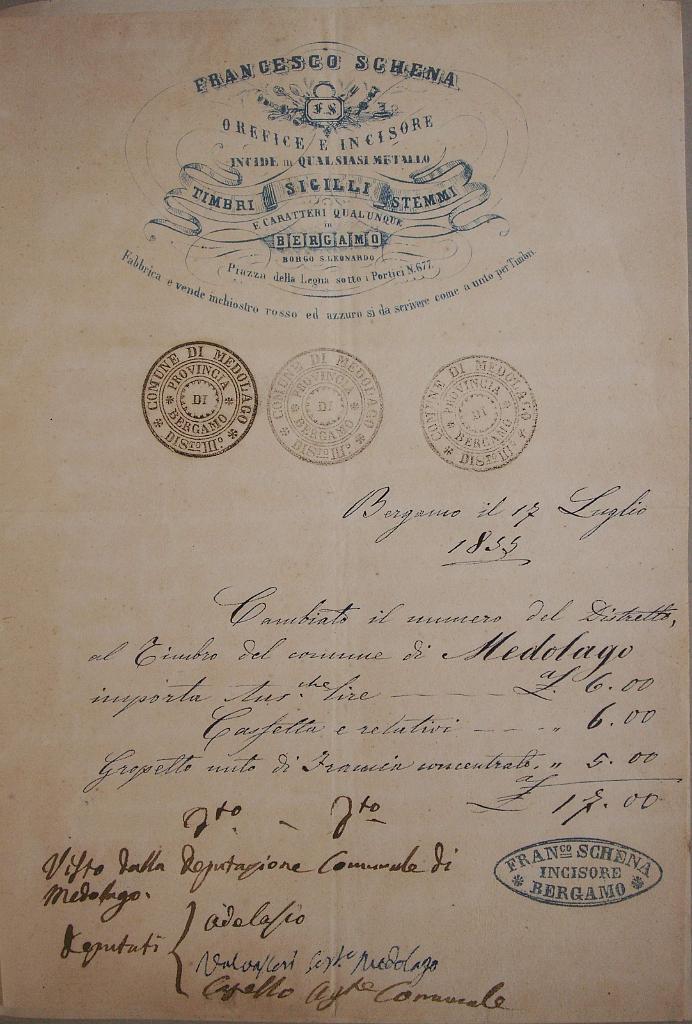 FRANCESCO SCHENA
F S
OREFICE E INCISORE
INCIDE in QUALSIASI METALLO
TIMBRI SIGILLI STEMMI
E CARATTERI QUALUNQUE
in
BERGAMO
BORGO S. LEONARDO
Piazza della Legna sotto i Portici N. 677.
Fabbrica e vende inchiostro rosso ed azzuro si da scrivere come a unto per Timbri
COMUNE DI MEDOLAGO
PROVINCIA
DI
BERGAMO
DISTO III°
COMUNE DI MEDOLAGO
PROVINCIA
DI
BERGAMO
DISTO III°
COMUNE DI MEDOLAGO
PROVINCIA
DI
BERGAMO
DISTO III°
Bergamo il 17 Luglio
1855
Cambiato il numero del Distretto,
al Timbro del comune di Medolago
importa Aus.che lire £. 6.00
Cassetta e relativi " 6.00
unto di Francia concentrato. " 5.00
£ 17.00
Visto dalla Deputazione Comunale di
Medolago.
Deputati
Adelasio
Medolago
Capello Agte Comunale
FRANCO SCHENA
INCISORE
BERGAMO